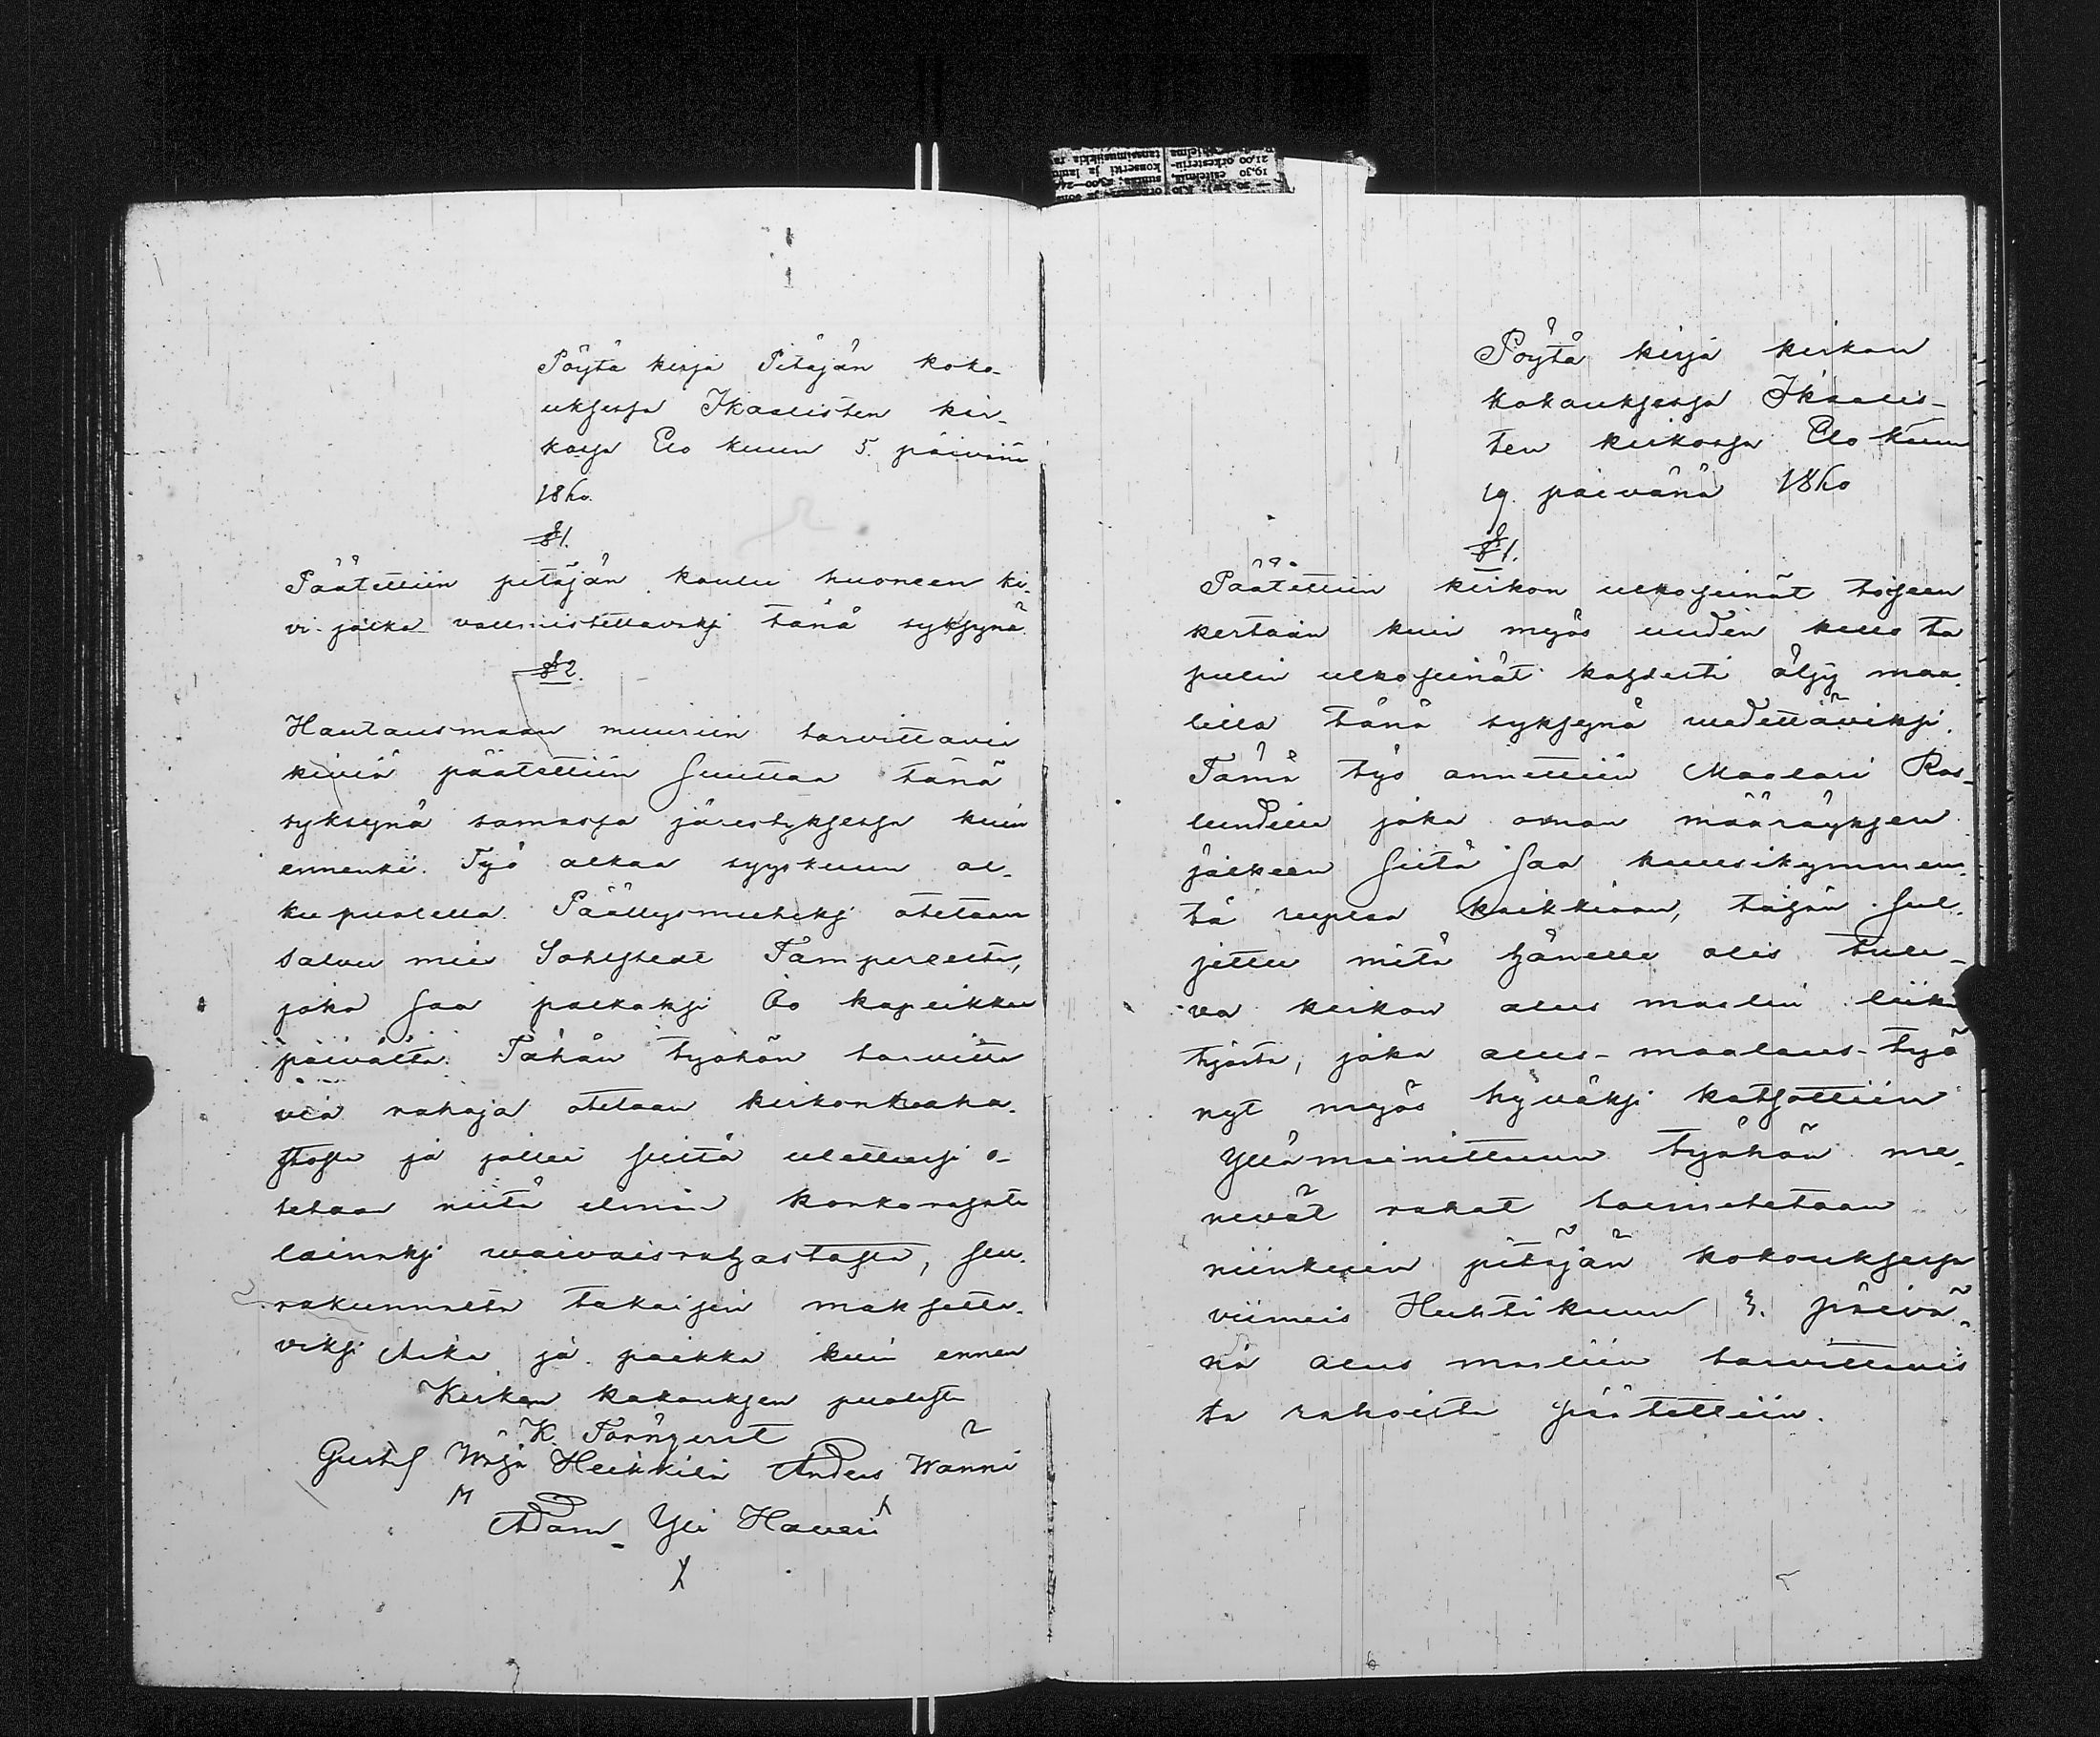 Pöytä kirja Pitäjän koko-
uksessa Ikaalisten kir-
kossa Elo kuun 5. päivänä
1860.
§ 1.
Päätettiin pitäjän koulu huoneen ki-
vi-jalka valmistettavaksi tänä syksynä.
§ 2.
Hautausmaan muuriin tarvittavia
kiviä päätettiin suuttaa tänä
syksynä samassa järestyksessä kuin
ennenki. Työ alkaa syyskuun al-
ku puolella. Päällysmieheksi otetaan
salvu mies Sahlstedt Tampereelta,
joka saa palkaksi 80 kapeikkaa
päivältä. Tähän työhön tarvitta
via rahoja otetaan kirkonkraha-
stosta ja jollei siitä ulettuisi o-
tetaan niitä ilman korkorahata
lainaksi waivaisrahastosta, seu-
rakunnalta takaisin maksetta-
viksi Aika ja paikka kuin ennen
Kirkon kokouksen puolesta
K Forngvist
Gustaf Wähä Heikkilä Anders Wänni
Adam Yli Haveri
Pöytä kirja kirkon
kokouksessa Ikaalis-
ten kirkossa Elo kuun
19. päivänä 1860
§ 1.
Päätettiin kirkon ulkoseinät toiseen
kertaan kuin myös uuden kello ta
pulin ulkoseinät kahdesti öljy maa-
lilla tänä syksynä vedettäviksi.
Tämä työ annettiin Maalari Ros-
lundille joka oman määräyksen
jälkeen siitä saa kuusikymmen-
tä ruplaa kaikkiaan, tähän sul-
jettu mitä hänelle olis tule-
va kirkon alus maalin liika
työstä, joka alus-maalaus-työ
nyt myös hyväksi katsottiin
Yllä mainittuun työhön me-
nevät rahat toimitetaan
niinkuin pitäjän kokouksessa
viimeis Huhtikuun 9. päivä-
nä alus maaliin tarvittavis
ta rahoista päätettiin.